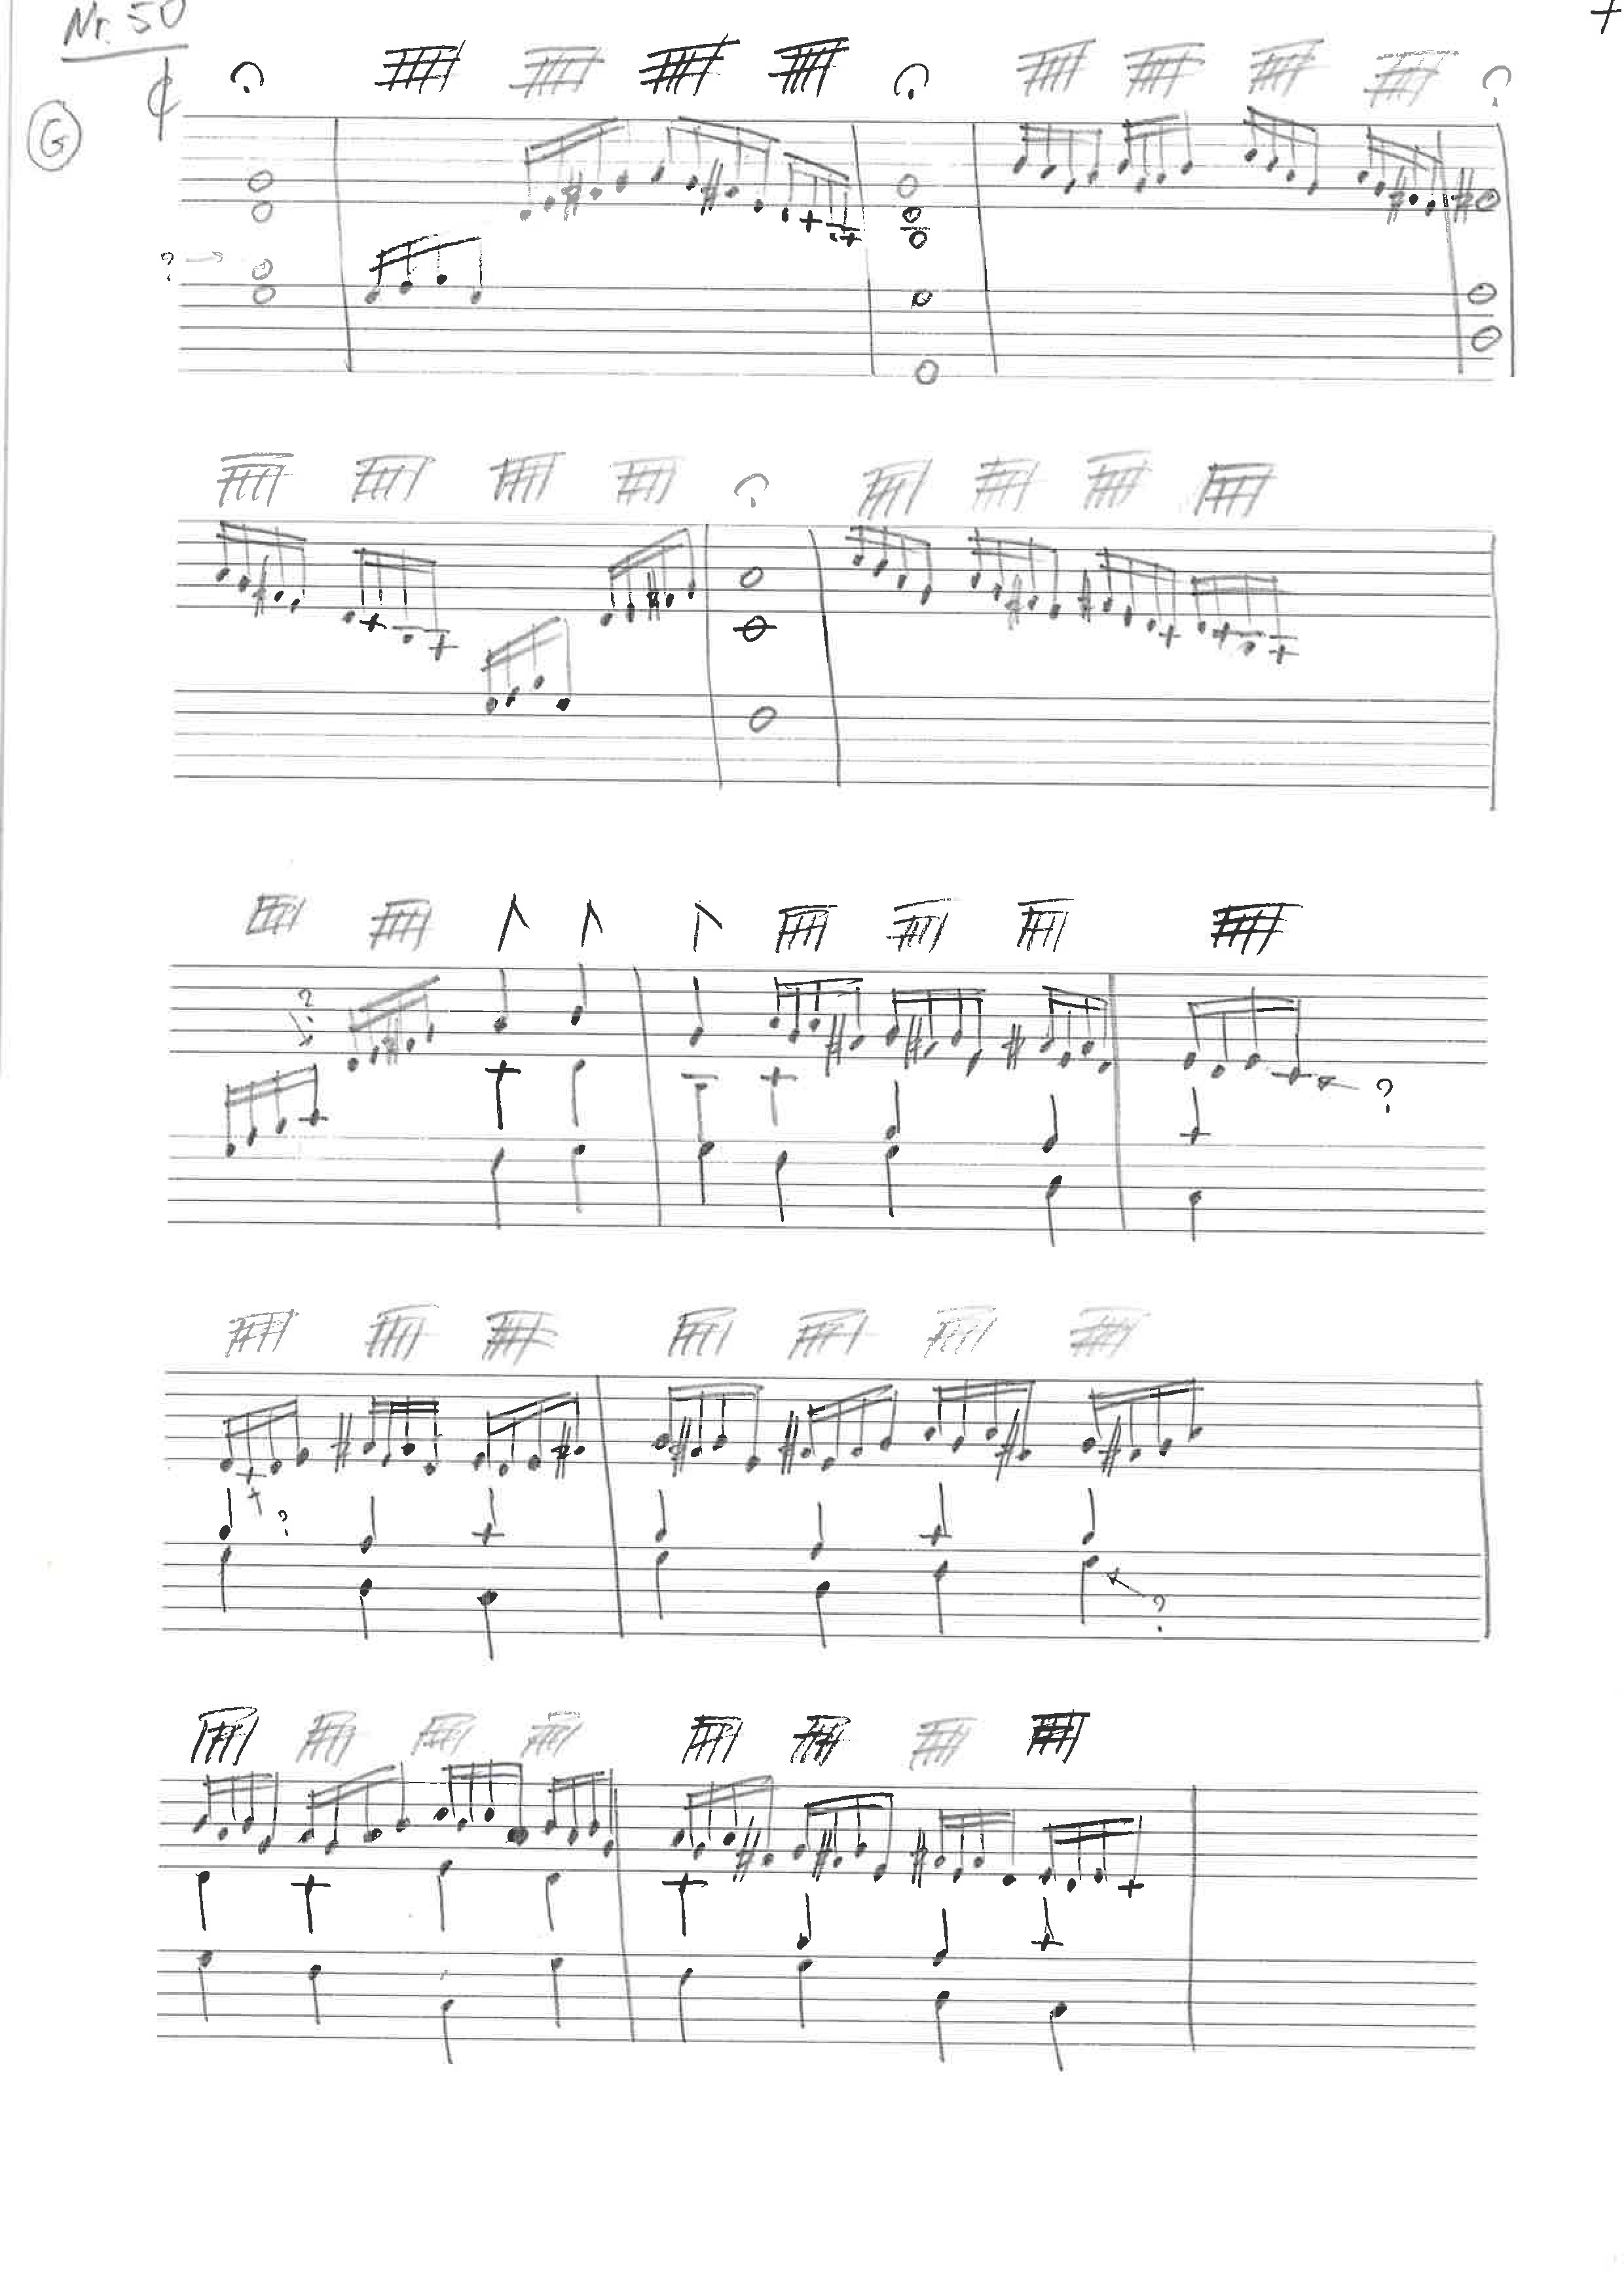 Nr. 50
G
?
?
?
?
?